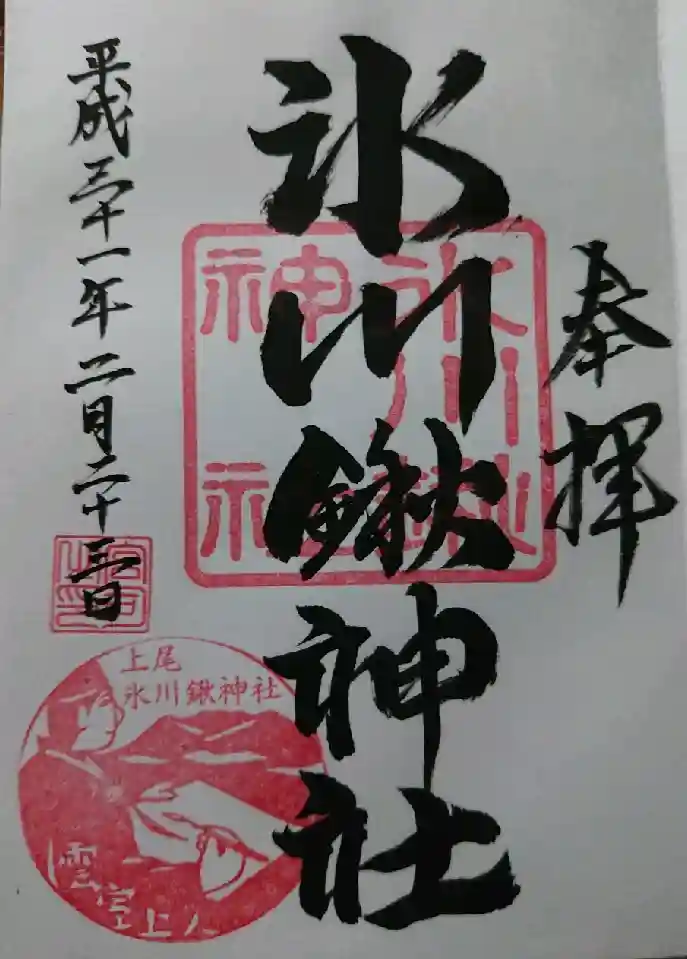 奉拝
氷川鍬神社
平成三十一年二月二十三日
氷川
鍬
神社
上尾
氷川鍬神社
雲室上人